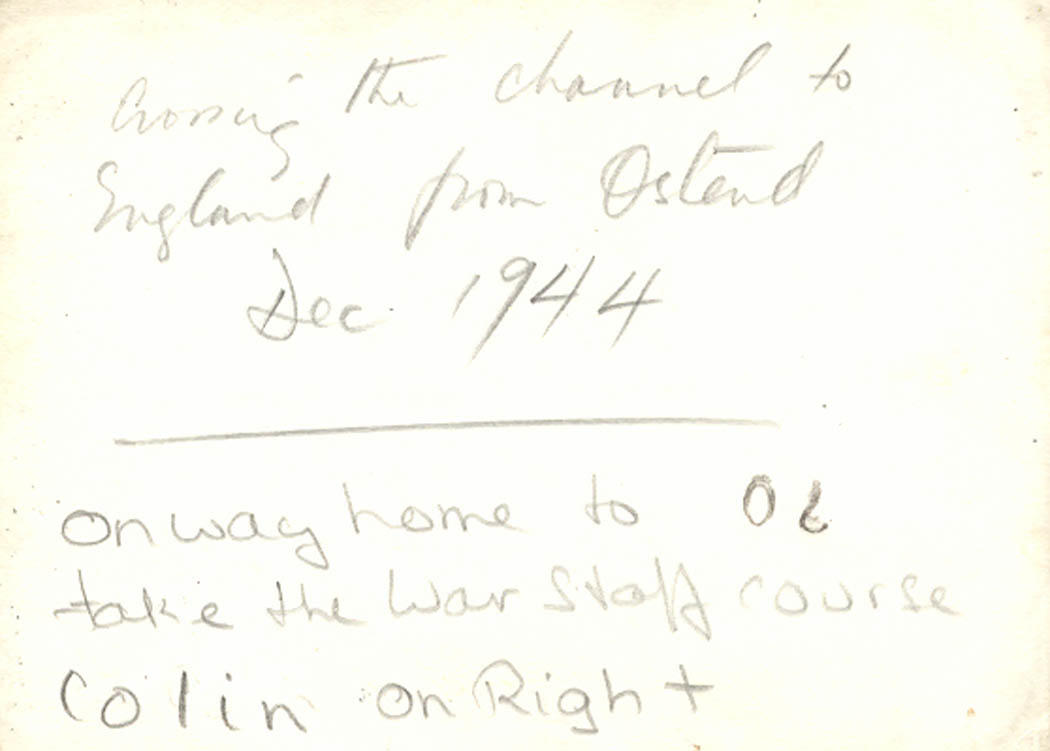 Crossing the channel to
England from Ostend
Dec 1944
on way home to
take the War Staff course
Colin on Right